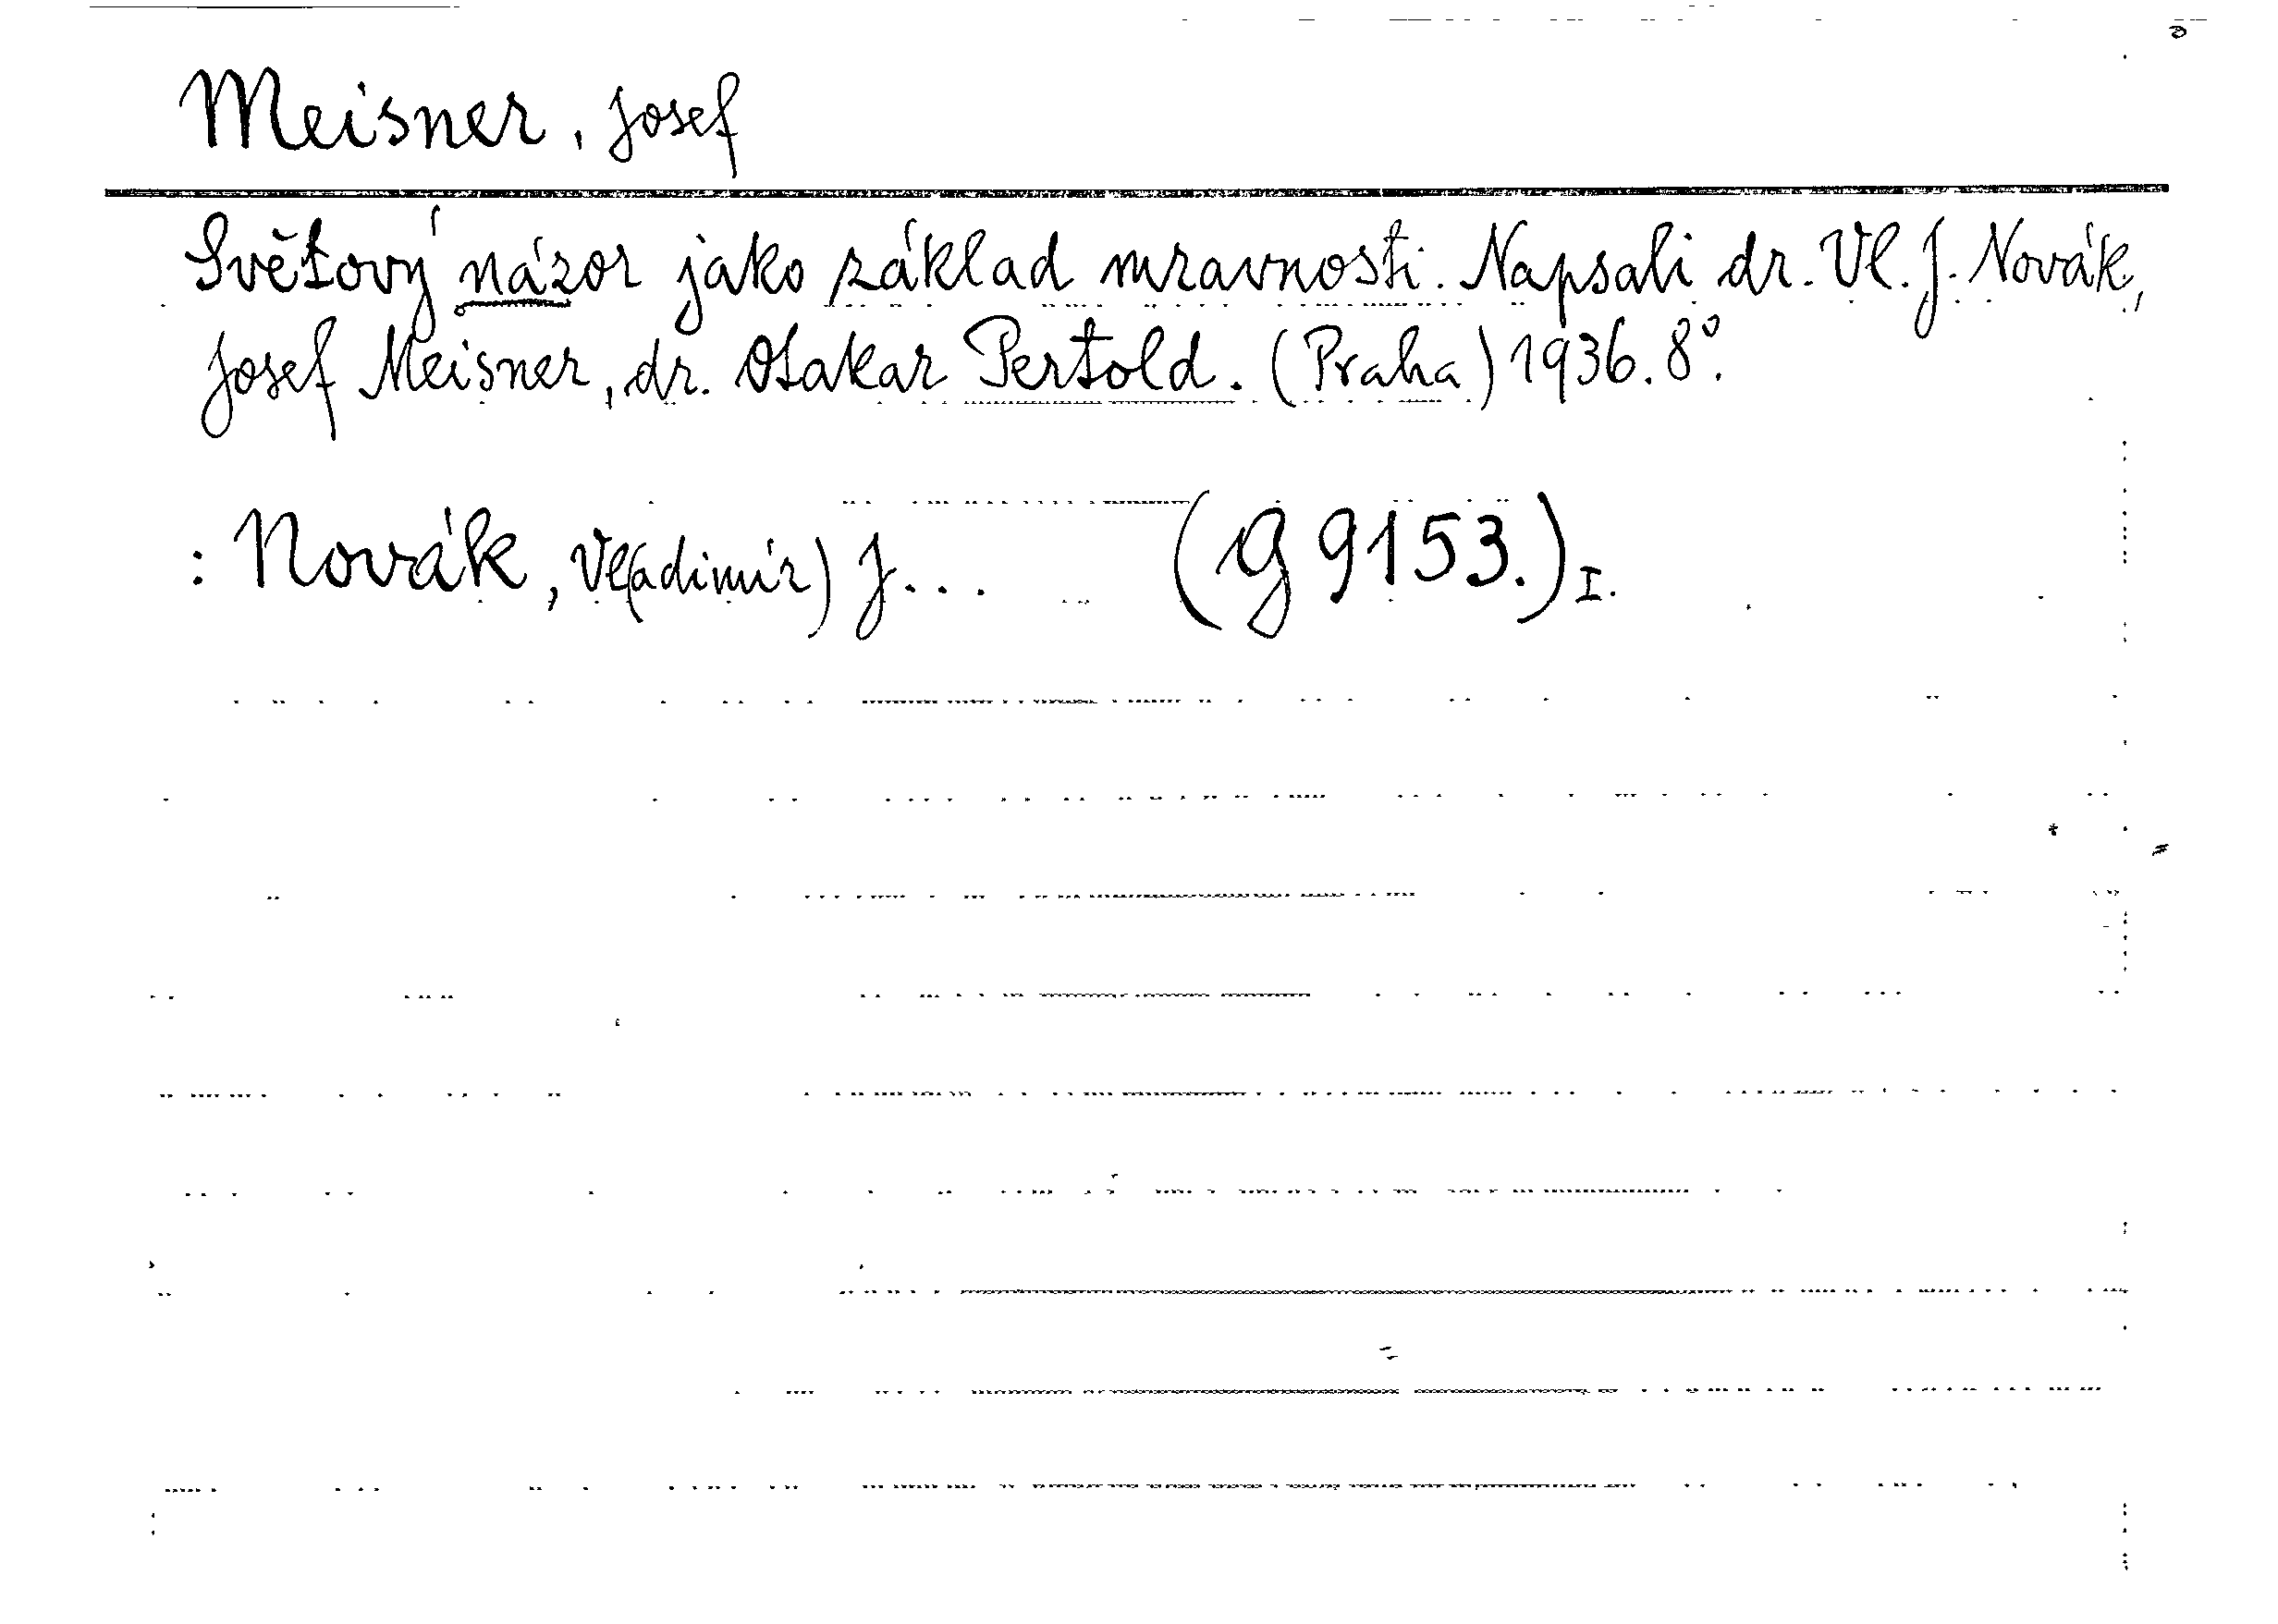 Meisner, Josef
Světový názor jako základ mravnosti. Napsali dr. Vl. J. Novák,
Josef Meisner, dr. Otakar Pertold. (Praha) 1936. 8°.
: Novák, Vl(adimír) J... (G 9153.) I.